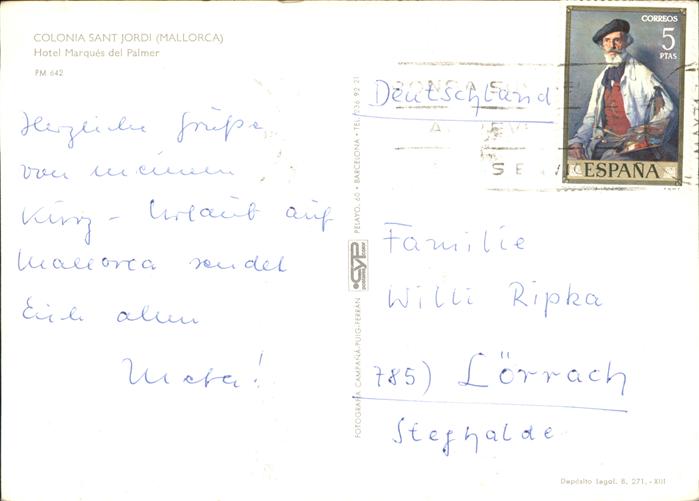 COLONIA SANT JORDI (MALLORCA)
Hotel Marqués del Palmer
PM 642
Herzliche Grüße
von meinem
Kurz-Urlaub auf
Mallorca sendet
Euch allen
Meta!
FOTOGRAFIA CAMPAÑÁ-PUIG-FERRAN
PELAYO, 60 • BARCELONA • TEL. 236 92 21
CYP
CORREOS
5
PTAS
ESPAÑA
Deutschland
Familie
Willi Ripka
785) Lörrach
Steghalde
Depósito Legal. B. 271.-XIII